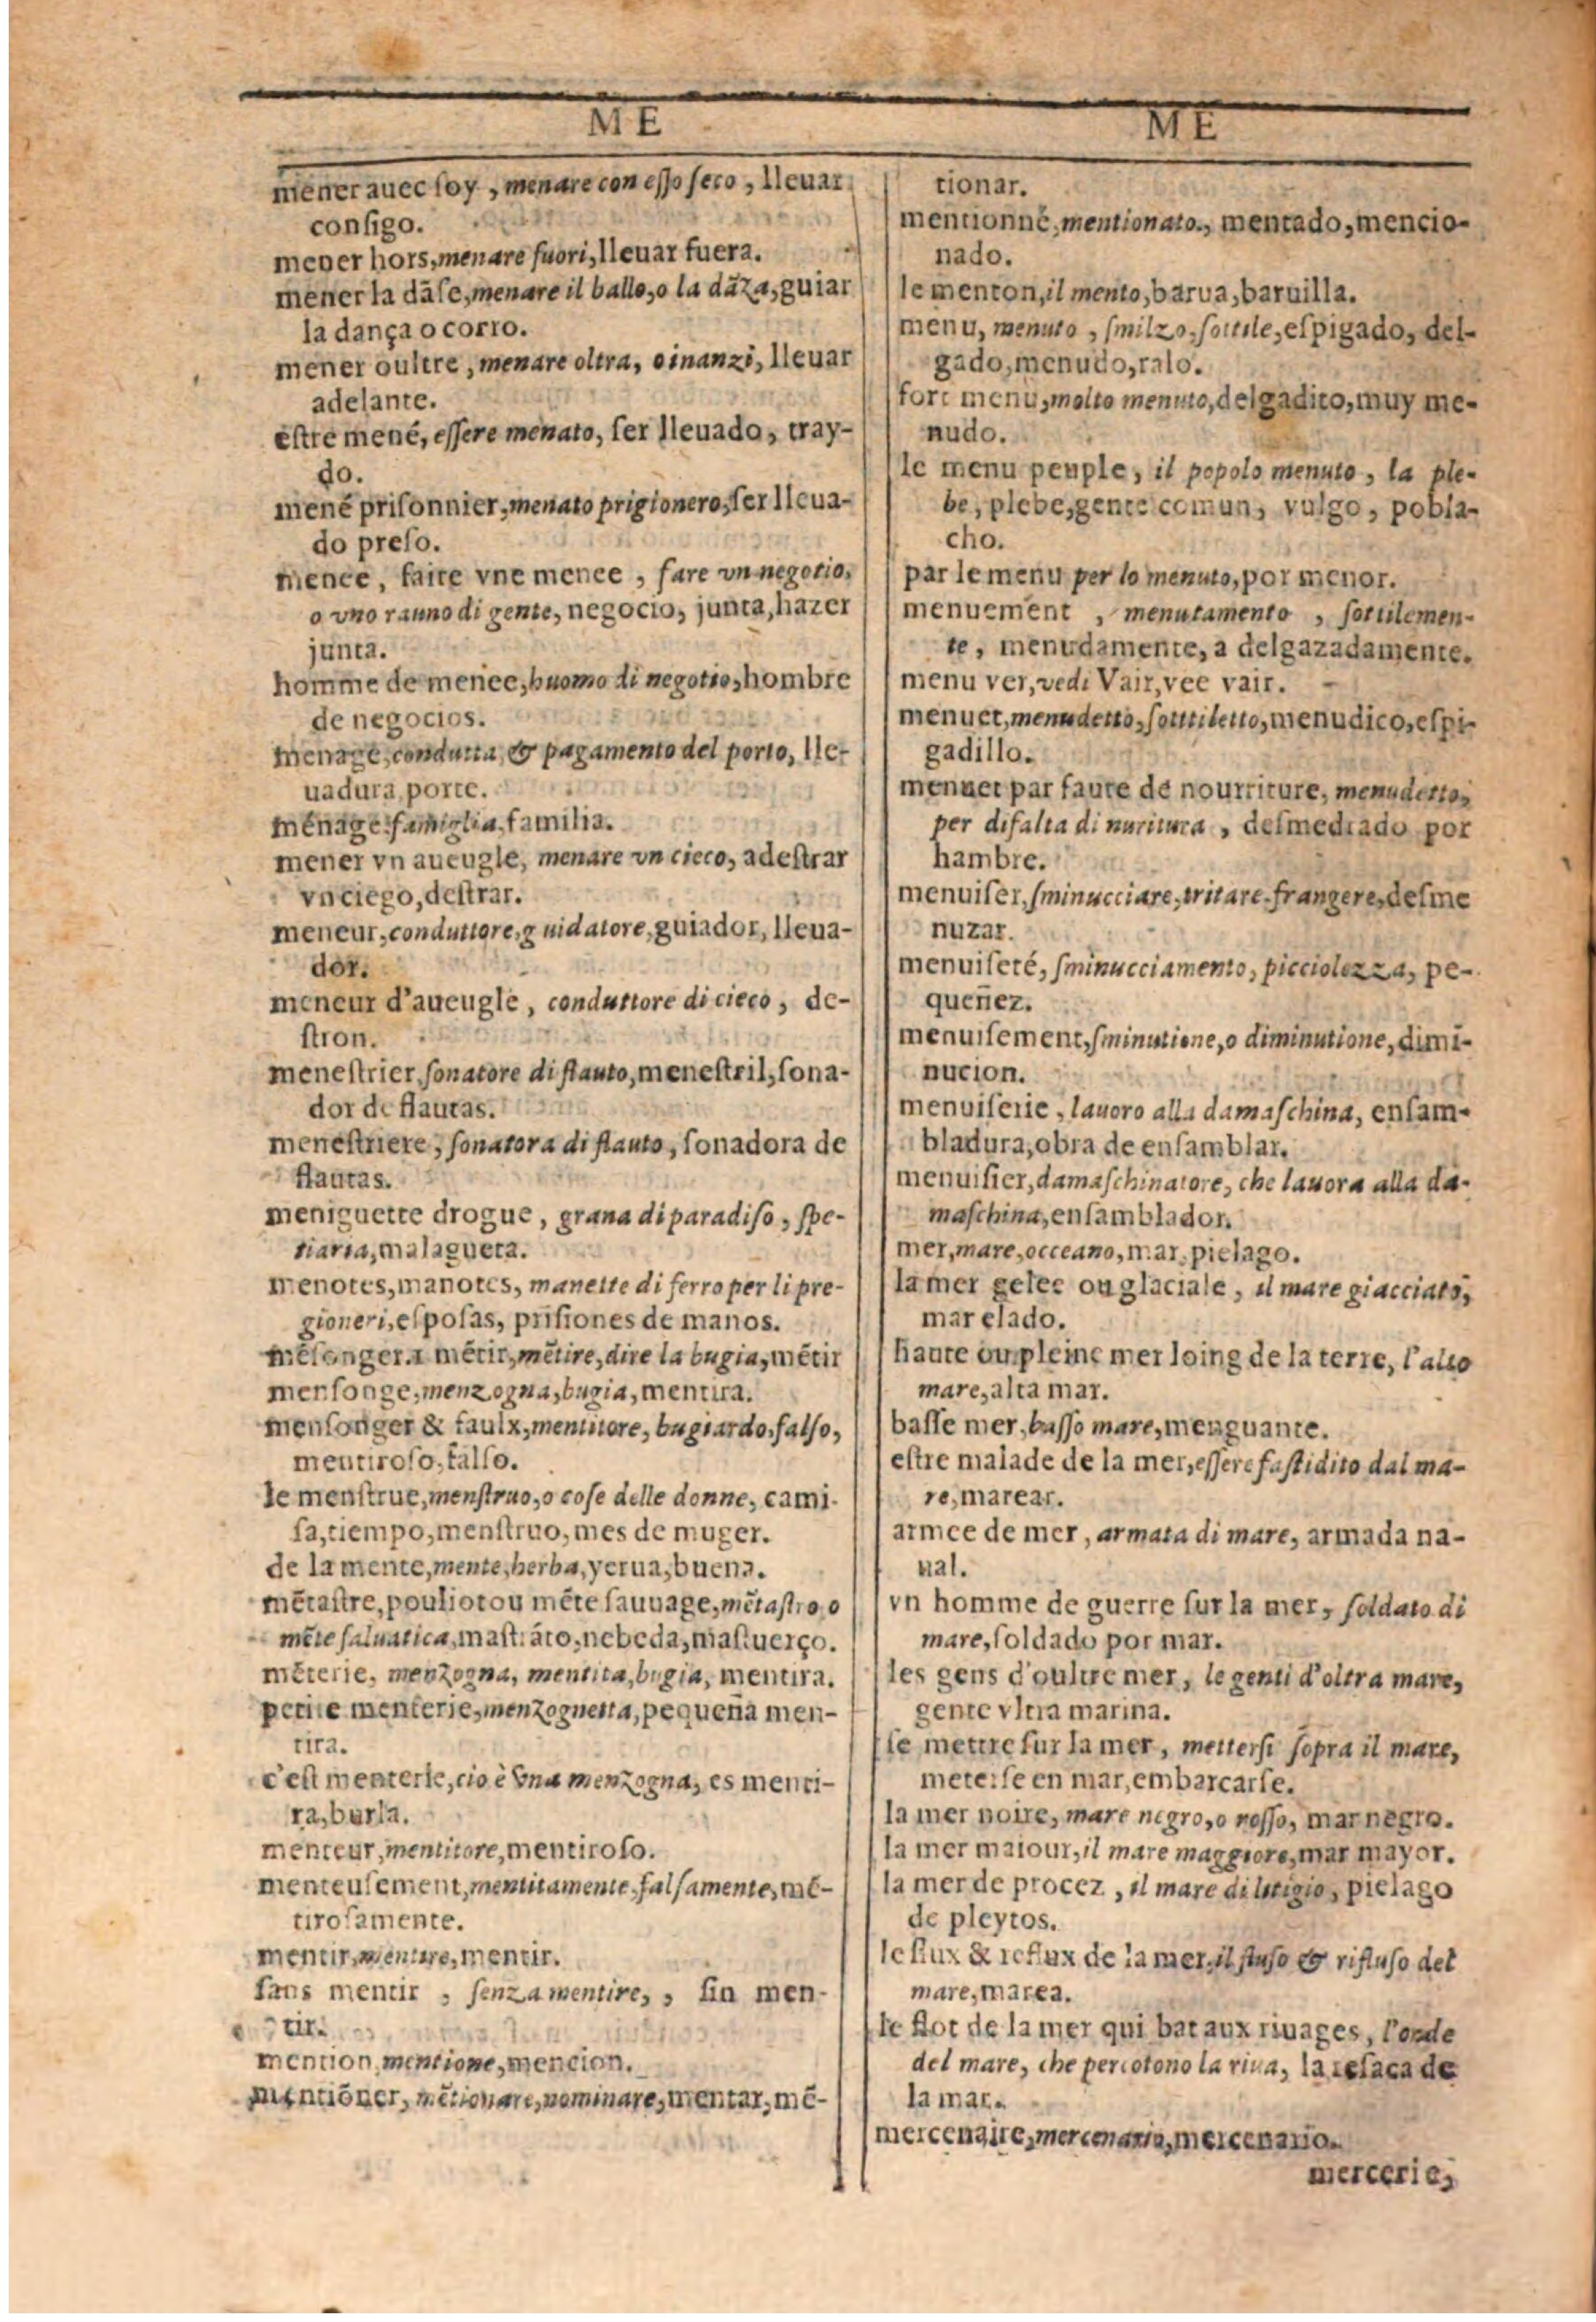 ME
mener auec ſoy, menare con eſſo ſeco, lleuar
conſigo.
mener hors, menare fuori, lleuar fuera.
mener la dãſe, menare il ballo, o la dãza, guiar
la dança o corro.
mener oultre, menare oltra, o inanzi, lleuar
adelante.
eſtre mené, eſſere menato, ſer lleuado, tray-
do.
mené priſonnier, menato prigionero, ſer lleua-
do preſo.
menee, faire vne menee, fare vn negotio,
o vno rauno di gente, negocio, junta, hazer
junta.
homme de menee, huomo di negotio, hombre
de negocios.
menage, condutta, & pagamento del porto, lle-
uadura, porte.
ménage famiglia, familia.
mener vn aueugle, menare vn cieco, adeſtrar
vn ciego, deſtrar.
meneur, conduttore, guidatore, guiador, lleua-
dor.
meneur d'aueugle, conduttore di cieco, de-
ſtron.
meneſtrier, ſonatore di flauto, meneſtril, ſona-
dor de flautas.
meneſtriere, ſonatora di flauto, ſonadora de
flautas.
meniguette drogue, grana di paradiſo, ſpe-
tiaria, malagueta.
menotes, manotes, manette di ferro per li pre-
gioneri, eſpoſas, priſiones de manos.
mẽtir, mẽtire, dire la bugia, mẽtir
menſonge, menzogna, bugia, mentira.
menſonger & faulx, mentitore, bugiardo, falſo,
mentiroſo, falſo.
le menſtrue, menſtruo, o coſe delle donne, cami-
ſa, tiempo, menſtruo, mes de muger.
de la mente, mente, herba, yerua, buena.
mẽtaſtre, pouliot ou mẽte ſauuage, mẽtaſtro, o
mẽte ſaluatica, maſtrãto, nebeda, maſtuerço.
mẽterie, menzogna, mentita, bugia, mentira.
petite menterie, menzognetta, pequeña men-
tira.
c'eſt menterie, cio è vna menzogna, es menti-
ra, burla.
menteur, mentitore, mentiroſo.
menteuſement, mentitamente, falſamente, mẽ-
tiroſamente.
mentir, mentire, mentir.
ſans mentir, ſenza mentire, , ſin men-
tir.
mention, mentione, mencion.
mentiõner, mẽtionare, nominare, mentar, mẽ-
ME
tionar.
mentionné, mentionato., mentado, mencio-
nado.
le menton, il mento, barua, baruilla.
menu, menuto, ſmilzo, ſottile, eſpigado, del-
gado, menudo, ralo.
fort menu, molto menuto, delgadito, muy me-
nudo.
le menu peuple, il popolo menuto, la ple-
be, plebe, gente comun, vulgo, pobla-
cho.
par le menu per lo menuto, por menor.
menuement, menutamento, ſottilemen-
te, menudamente, a delgazadamente.
menu ver, vedi Vair, vee vair.
menuet, menudetto, ſotttiletto, menudico, eſpi-
gadillo.
menuet par faute de nourriture, menudetto,
per difalta di nuritura, deſmedrado por
hambre.
menuiſer, ſminucciare, tritare, frangere, deſme
nuzar.
menuiſeté, ſminucciamento, picciolezza, pe-
queñez.
menuiſement, ſminutione, o diminutione, dimi-
nucion.
menuiſerie, lauoro alla damaſchina, enſam-
bladura, obra de enſamblar.
menuiſier, damaſchinatore, che lauora alla da-
maſchina, enſamblador.
mer, mare, occeano, mar, pielago.
la mer gelee ou glaciale, il mare giacciato,
mar elado.
haute ou pleine mer loing de la terre, l'alto
mare, alta mar.
baſſe mer, baſſo mare, menguante.
eſtre malade de la mer, eſſere faſtidito dal ma-
re, marear.
armee de mer, armata di mare, armada na-
ual.
vn homme de guerre ſur la mer, ſoldato di
mare, ſoldado por mar.
les gens d'oultre mer, le genti d'oltra mare,
gente vltra marina.
ſe mettre ſur la mer, metterſi ſopra il mare,
meterſe en mar, embarcarſe.
la mer noire, mare negro, o roſſo, mar negro.
la mer maiour, il mare maggiore, mar mayor.
la mer de procez, il mare di litigio, pielago
de pleytos.
le flux & reflux de la mer, il fluſo & rifluſo del
mare, marea.
le flot de la mer qui bat aux riuages, l'onde
del mare, che percotono la riua, la reſaca de
la mar.
mercenaire, mercenario, mercenario.
mercerie,